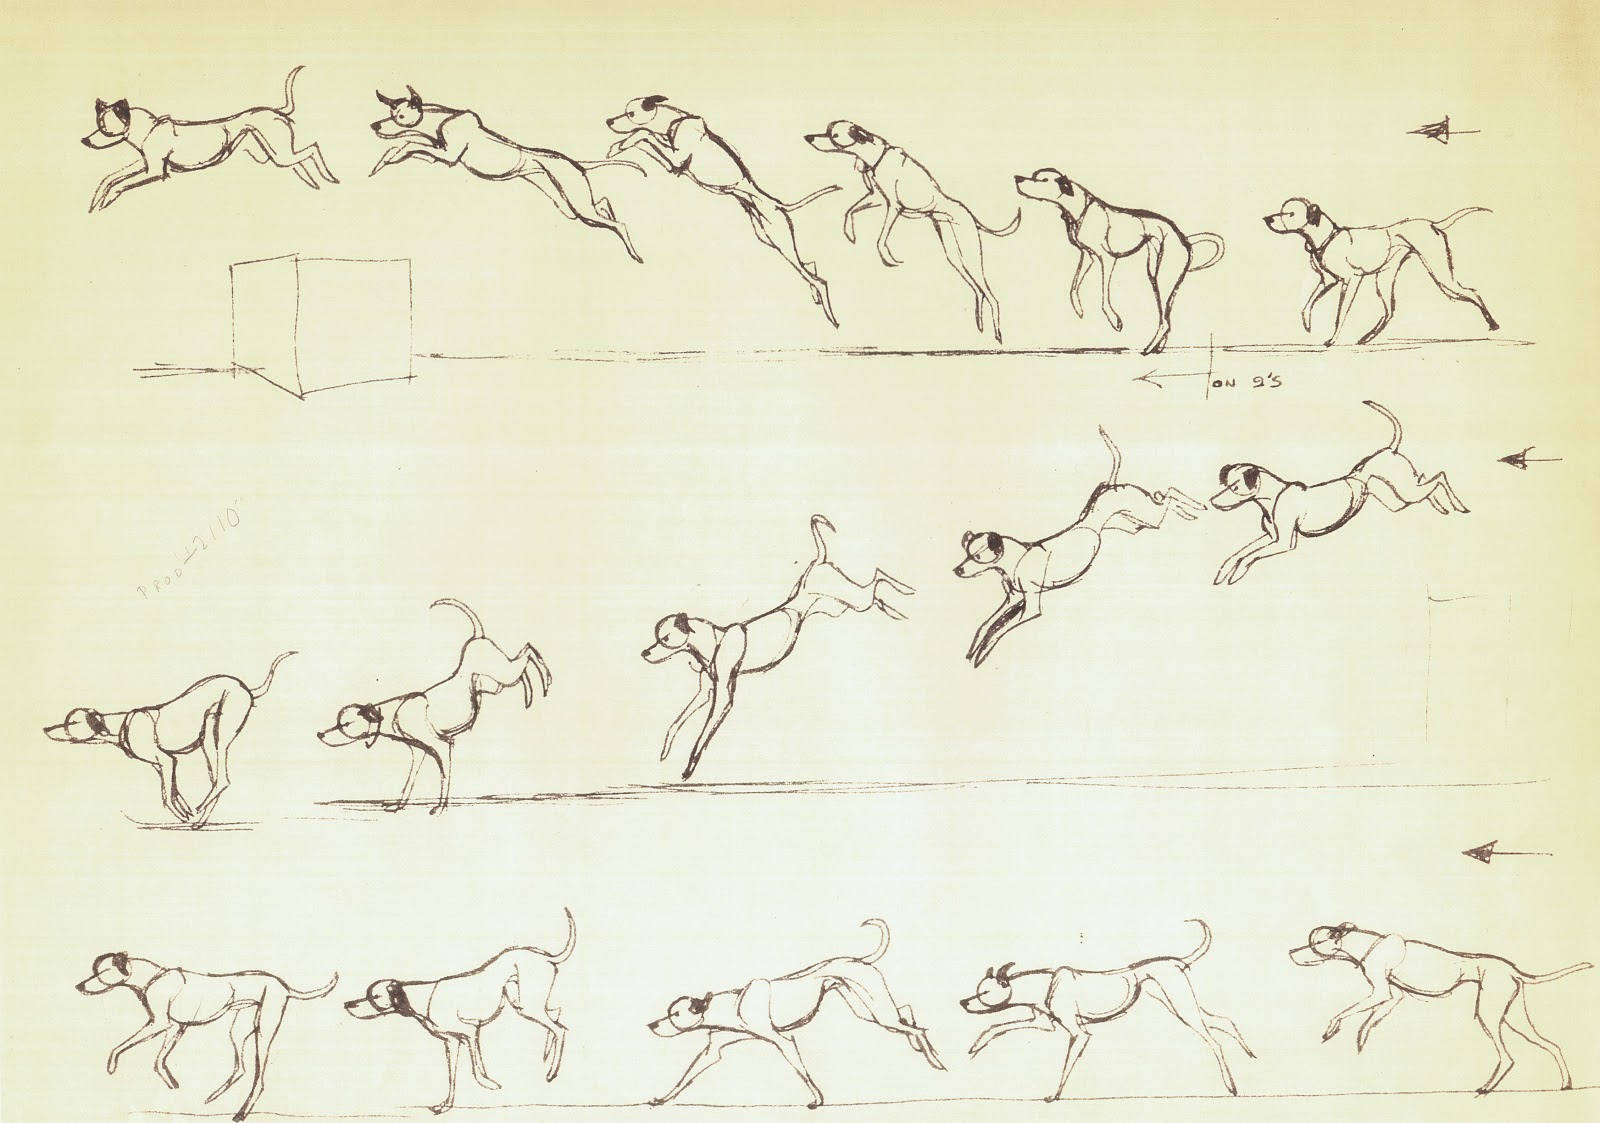 ON 2'S
PROD 2110